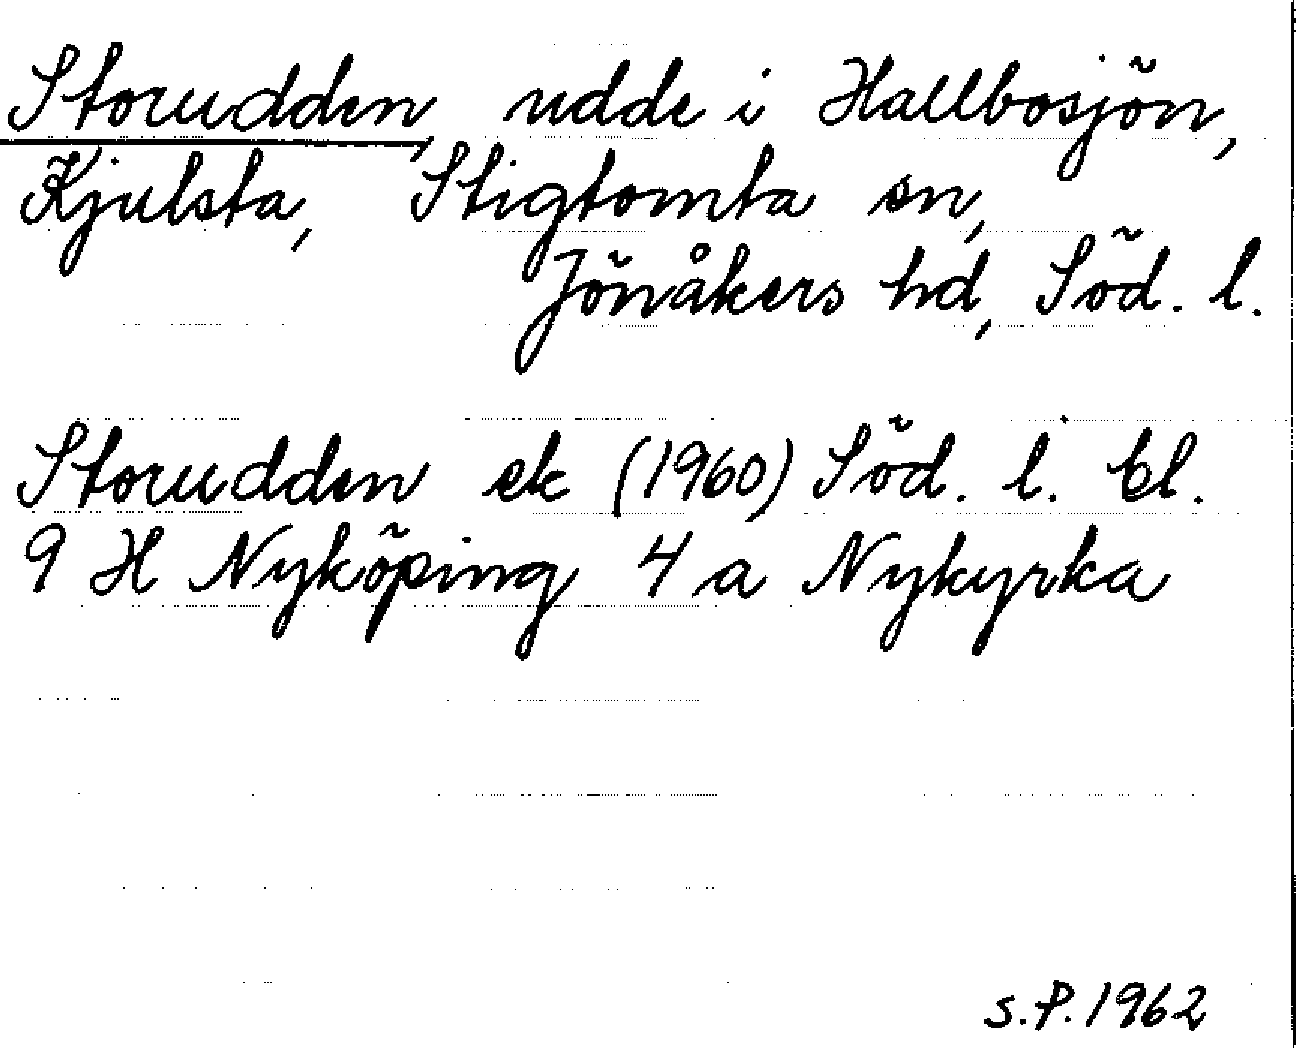 Storudden, udde i Hallbosjön,
Kjulsta, Stigtomta sn,
Jönåkers hd, Söd. l.
Storudden ek (1960) Söd. l. bl.
9 H Nyköping 4 a Nykyrka
S.P. 1962